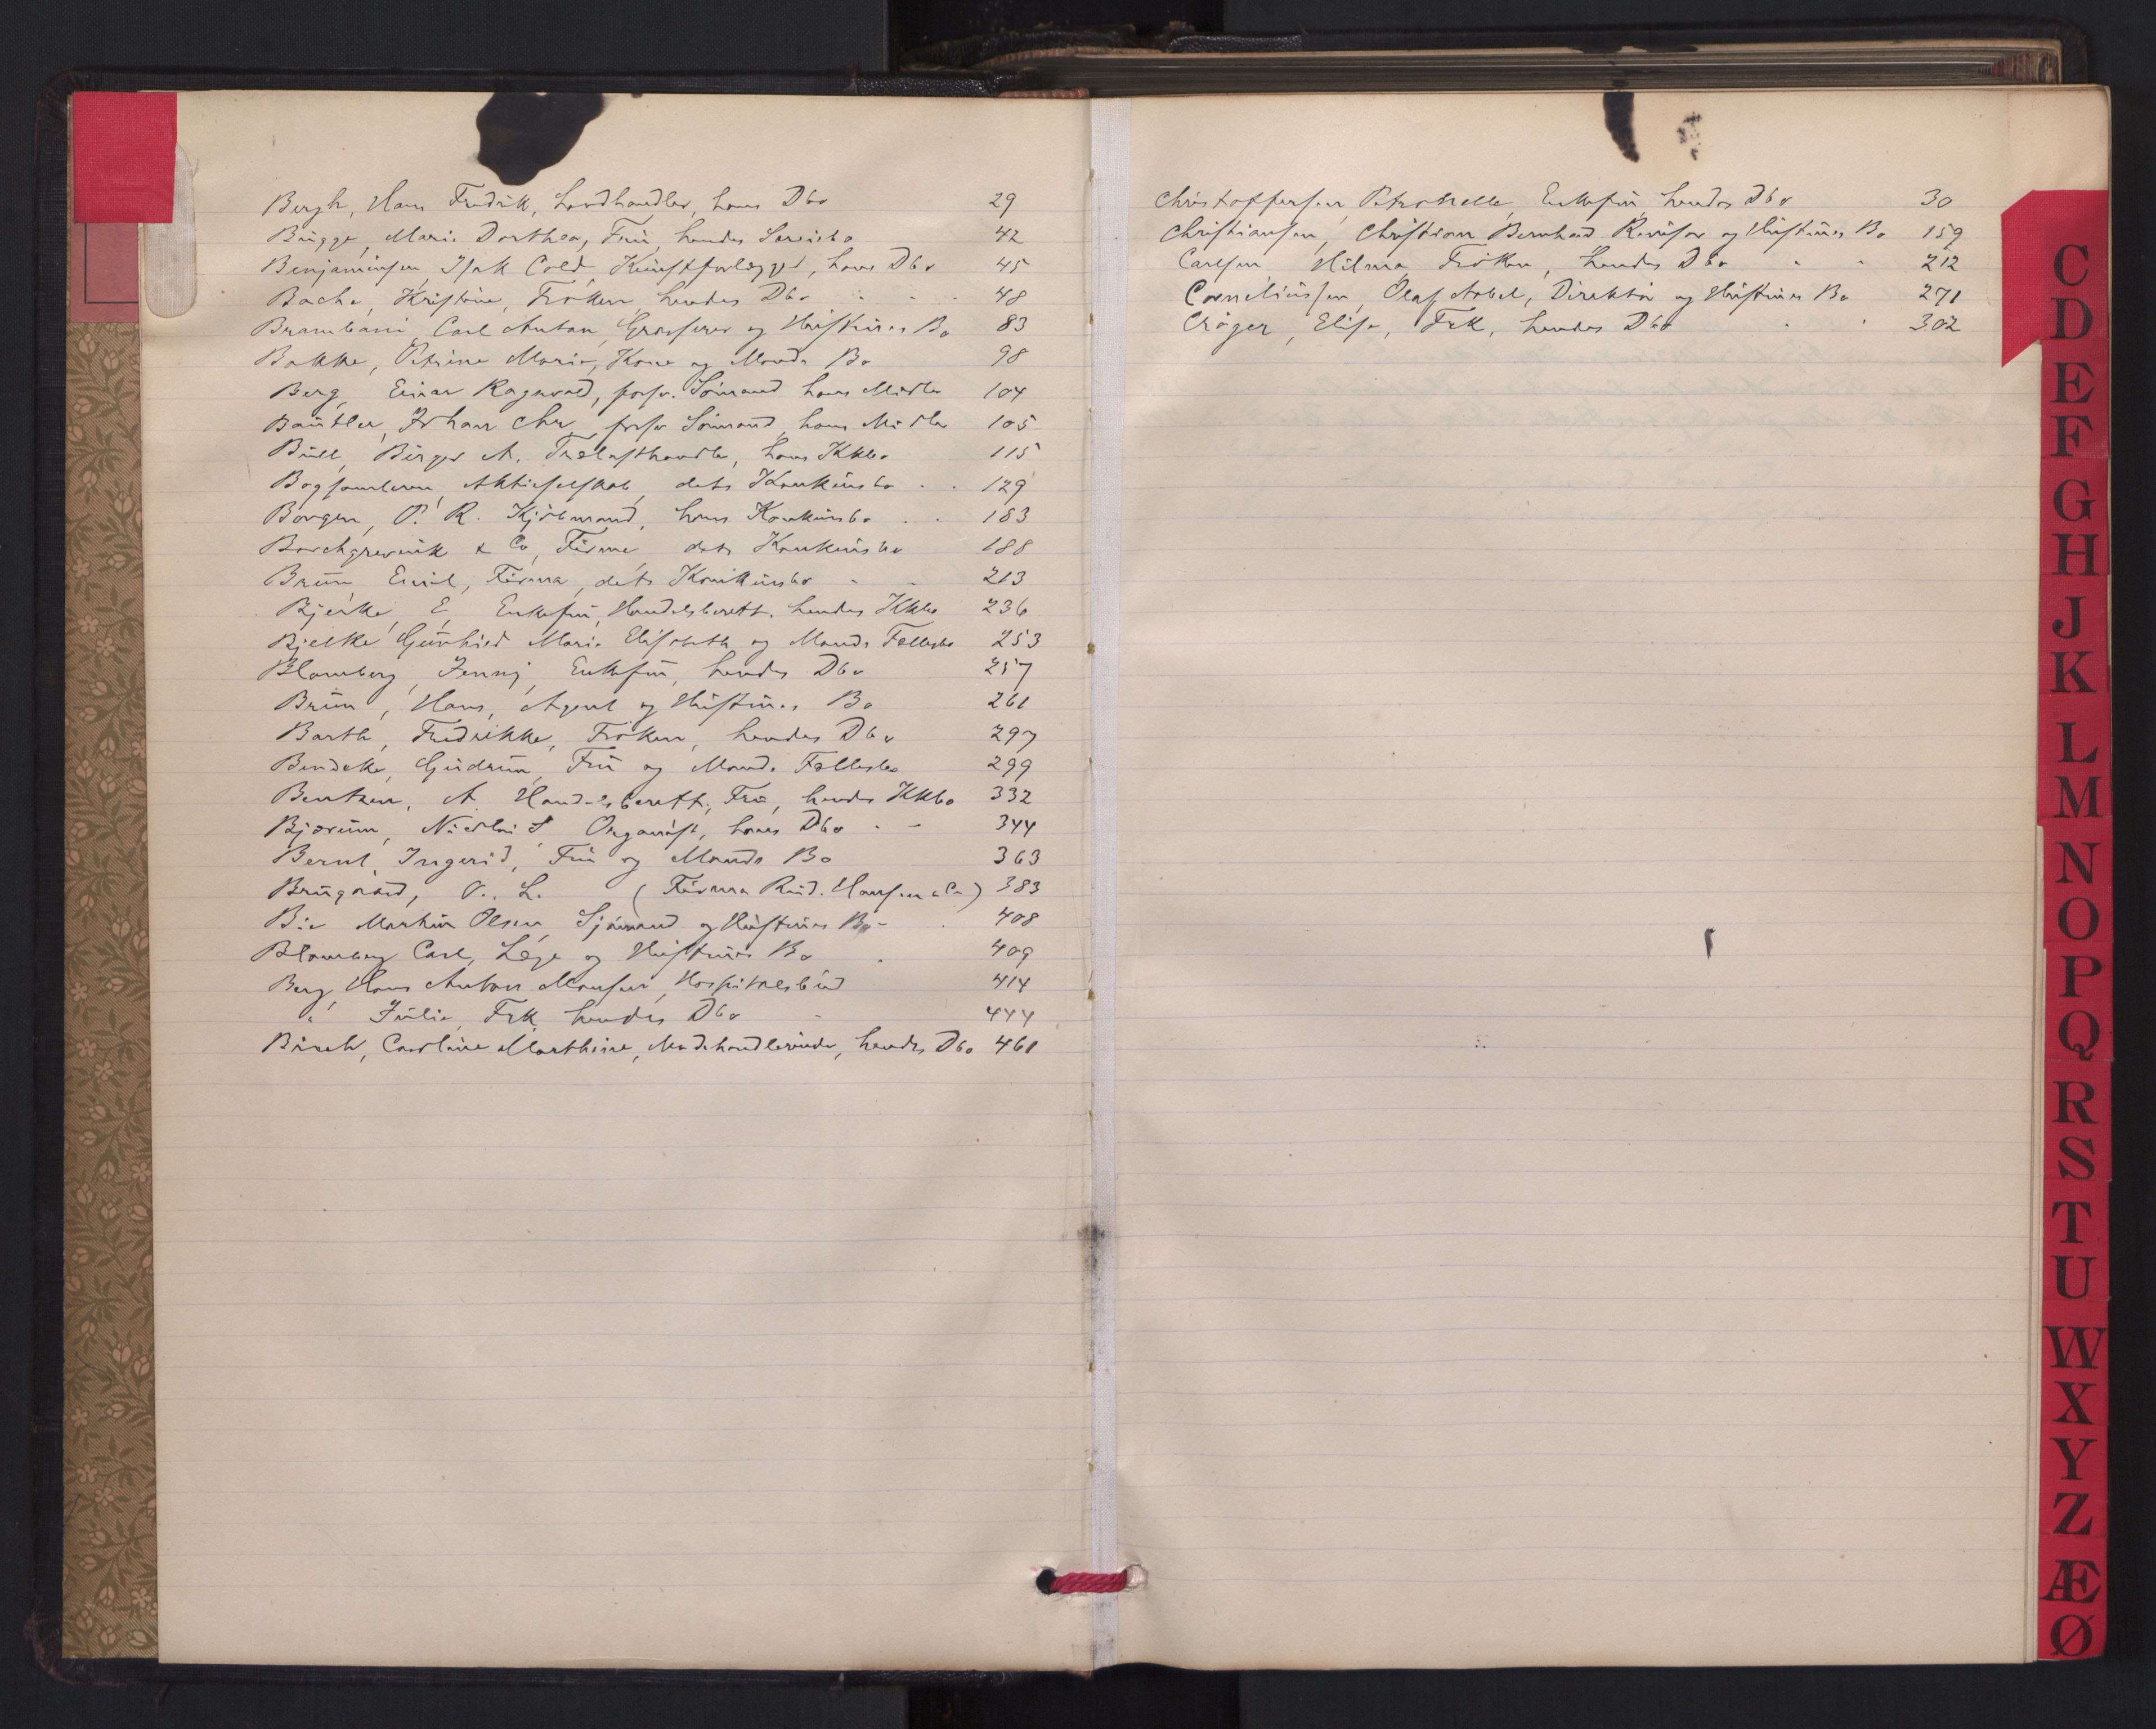 Bergh, Hans Fredrik, Landhandler, hans Dbo 29
Bugge, Marie Dorthea, Frü, hendes Særeiebo 42
Benjaminsen, Isak Cold, Kunstforlægger, hans Dbo 45
Bache, Kristine, Frøken, hendes Dbo 48
Brambani, Carl Anton, Grosserer og Hustrues Bo 83
Bakke, Petrine Marie, Kone og Mands Bo 98
Berg, Einar Ragnvald, forsv. Sömand hans Midler 104
Johan Chr forsv Sömand, hans Midler 105
Bull, Birger A. Trælasthandler, hans Kkbo 115
Bogsamleren, Aktieselskab, dets Konkursbo 129
Borgen, P. R. Kjöbmand, hans Konkursbo 183
Borchgrevink & Co, Firma, dets Konkursbo 188
Bruun Emil, Firma, dets Konkursbo 213
Bjerke, E, Enkefru, Handelsberett. hendes Kkbo 236
Bjelke Gunhild Marie Elisabeth og Mands Fællesbo 253
Blomberg, Jenny, Enkefru, hendes Dbo 257
Bruun, Hans, Agent og Hustrues Bo 261
Barth, Fredrikke, Fröken, hendes Dbo 297
Bendeke, Gudrun, Fru og Mands Fællesbo 299
Berntzen, A. Handelsberett., Fru, hendes Kkbo 332
Nicolai S Organist, hans Dbo 344
Bernt, Ingerid, Fru og Mands Bo 363
O. L. (Firma Rud. Hansen & Co) 383
Bie Martin Olsen, Sjömand og Hustrues Bo 408
Blomberg Carl, Læge og Hustrues Bo 409
Berg, Hans Anton Hansen, Hospitalsbud 414
" Julie, Frk, hendes Dbo 444
Birch, Caroline Marthine, Modehandlerinde, hendes Dbo 461
Christoffersen Petronelle, Enkefru, hendes Dbo 30
Christiansen, Christian Bernhard Revisor og Hustrues Bo 159
Carlsen, Hilma, Fröken, hendes Dbo 212
Corneliussen, Olaf Abel, Direktör og Hustrues Bo 271
Cröger, Elise, Frk, hendes Dbo 302
C
D
E
F
G
H
J
K
L
M
N
O
P
Q
R
S
T
U
W
X
Y
Z
Æ
Ø